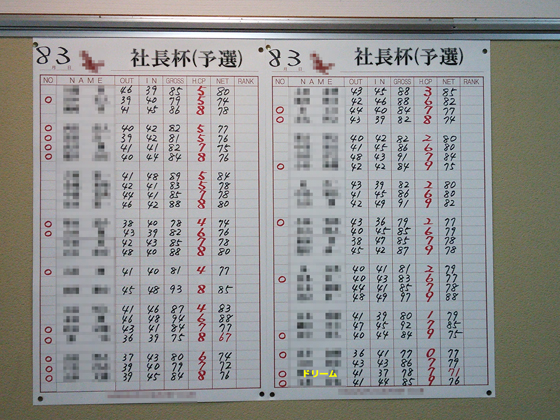 83 社長杯(予選)
NO NAME OUT IN GROSS H.CP NET RANK
46 39 85 5 80
39 40 79 5 74
41 45 86 8 78
40 42 82 5 77
39 42 81 5 76
41 41 82 7 75
40 44 84 8 76
41 48 89 5 84
42 41 83 5 78
44 41 85 7 78
46 42 88 8 80
38 40 78 4 74
43 39 82 6 76
42 43 85 7 78
48 40 88 8 80
41 40 81 4 77
45 48 93 8 85
41 46 87 4 83
46 48 94 6 88
43 41 84 7 77
36 39 75 8 67
37 43 80 6 74
39 40 79 7 72
39 45 84 8 76
83 社長杯(予選)
NO NAME OUT IN GROSS H.CP NET RANK
43 45 88 3 85
42 46 88 6 82
44 40 84 7 77
43 39 82 8 74
40 42 82 2 80
41 45 86 6 80
48 43 91 7 84
42 42 84 9 75
43 39 82 2 80
41 45 86 6 80
42 49 91 9 82
43 36 79 2 77
40 45 85 6 79
38 47 85 7 78
45 42 87 9 78
40 41 81 2 79
40 43 83 6 77
44 41 85 7 78
48 49 97 9 88
41 39 80 1 79
47 45 92 7 85
40 44 84 9 75
36 41 77 0 77
43 43 86 7 79
ドリーム 41 37 78 7 71
41 44 85 9 76